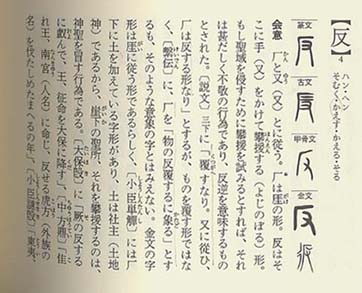 【反】4
ハン・ヘン
そむく・かえす・かえる・そる
篆文
古文
甲骨文
金文
会意 厂と又(又)とに従う。厂は厓の形。反はそ
こに手(又)をかけて攀援する(よじのぼる)形。
もし聖域を侵すために攀援を試みるとすれば、それ
は甚だしく不敬の行為であり、反逆を意味するもの
とされた。〔説文〕三下に「覆すなり。又に從ひ、
厂は反する形なり」とするが、ものを覆す形ではな
く、〔繫伝〕に、厂を「物の反覆するに象る」とす
るも、そのような意象の字とはみえない。金文の字
形は厓に従う形であるらしく、〔小臣単觶〕には厂
下に土を加えている字形があり、土は社主(土地
神)であるから、崖下の聖所、それを攀援するのは、
神聖を冒す行為である。〔大保𣪘〕に「厥の反する
に んで、王、征命を大保に降す」、〔中方鼎〕「隹
れ王、南宮(人名)に命じ、反せる虎方(外族の
名)を伐たしめたまへるの年」、〔小臣 𣪘〕「東夷、